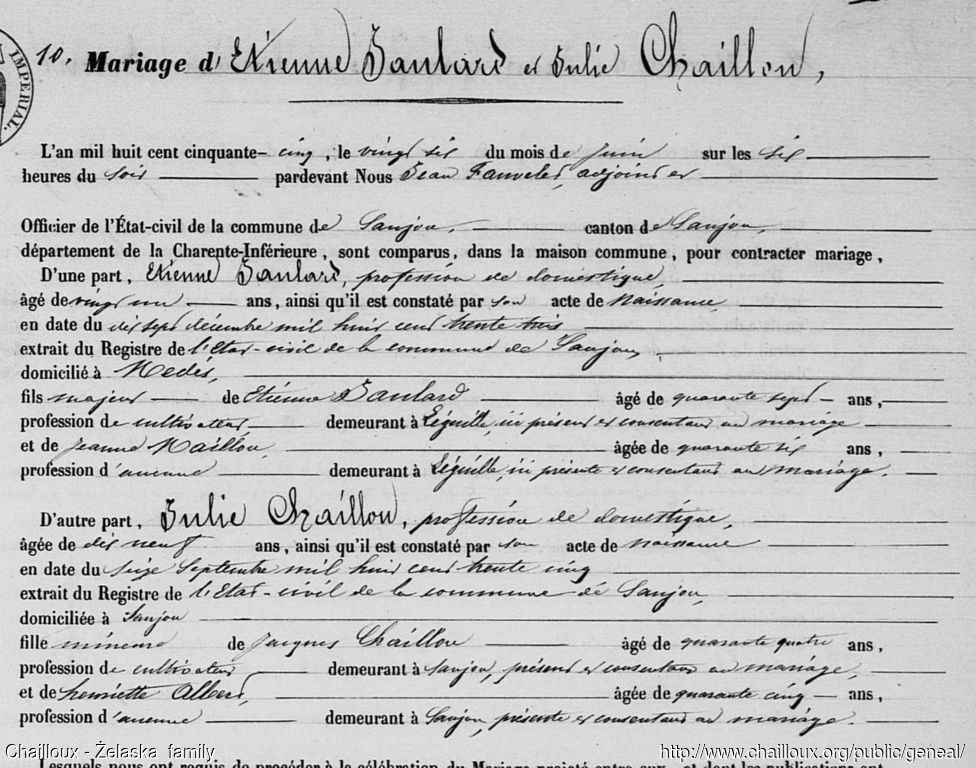 IMPERIAL.
10. Mariage d'Etienne Baulard et Julie Chaillou,
L'an mil huit cent cinquante-cinq, le vingt six du mois de Juin sur les six
heures du soir pardevant Nous Jean Fauveler, adjoint et
Officier de l'État-civil de la commune de Saujon, canton de Saujon,
département de la Charente-Inférieure, sont comparus, dans la maison commune, pour contracter mariage,
D'une part, Etienne Baulard, profession de domestique,
âgé de vingt un ans, ainsi qu'il est constaté par son acte de naissance,
en date du dix sept décembre mil huit cent trente trois
extrait du Registre de l'Etat-civil de la commune de Saujon,
domicilié à Medis,
fils majeur de Etienne Baulard âgé de quarante sept ans,
profession de cultivateur, demeurant à Léguille, ici présent et consentant au mariage
et de Jeanne Maillou, âgée de quarante six ans,
profession d'aucune demeurant à Léguille, ici présente et consentant au mariage.
D'autre part, Julie Chaillou, profession de domestique,
âgée de dix neuf ans, ainsi qu'il est constaté par son acte de naissance
en date du seize Septembre mil huit cent trente cinq
extrait du Registre de l'Etat-civil de la commune de Saujon,
domiciliée à Saujon
fille mineure de Jacques Chaillou âgé de quarante quatre ans,
profession de cultivateur demeurant à Saujon, présent et consentant au mariage,
et de henriette Albert, âgée de quarante cinq ans,
profession d'aucune demeurant à Saujon, présente et consentant au mariage.
Chailloux - Żelaska family http://www.chailloux.org/public/geneal/
Lesquels nous ont requis de procéder à la célébration du Mariage projeté entre eux, et dont les publications ont